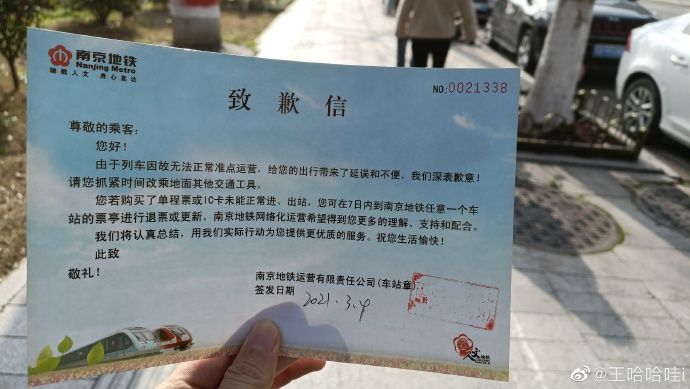 南京地铁
Nanjing Metro
NO:0021338
致歉信
尊敬的乘客:
您好!
由于列车因故无法正常准点运营,给您的出行带来了延误和不便,我们深表歉意!
请您抓紧时间改乘地面其他交通工具。
您若购买了单程票或IC卡未能正常进、出站,您可在7日内到南京地铁任意一个车
站的票亭进行退票或更新,南京地铁网络化运营希望得到您更多的理解、支持和配合。
我们将认真总结,用我们实际行动为您提供更优质的服务。祝您生活愉快!
此致
敬礼!
南京地铁运营有限责任公司(车站章)
签发日期 2021.3.4
人文地铁
@王哈哈哇i